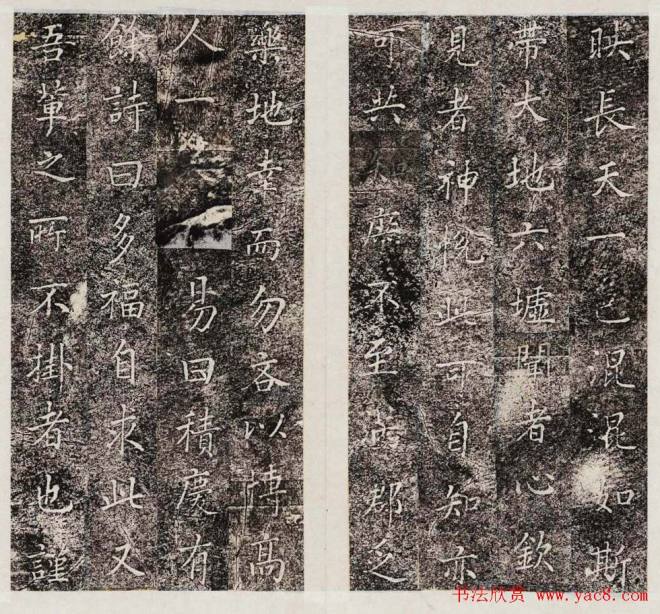 映長天一色混混如斯
帶大地六墟聞者心欽
見者神怳此可自知亦
可共知不至郡乏
樂地幸而勿吝以博高
人一易曰積慶有
餘詩曰多福自求此又
吾輩之所不掛者也謹
书法欣赏 www.yac8.com